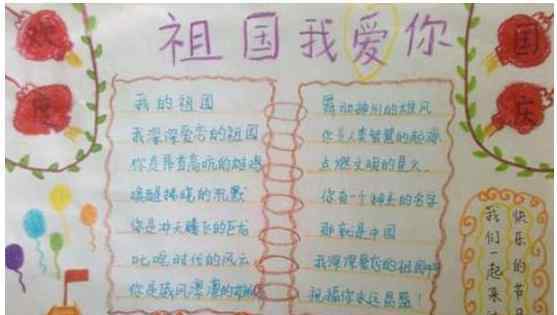 欢度
国庆
祖国我爱你
我的祖国
我深深爱恋的祖国
你是昂首高吭的雄鸡
唤醒拂晓的沉默
你是冲天腾飞的巨龙
叱咤时代的风云
你是威风凛凛的
舞动神州的雄风
你是人类智慧的起源
点燃文明的星火
你有一个神圣的名字
那就是中国
我深深爱恋的祖国
祝福你永远昌盛！
快乐的节
我们一起来